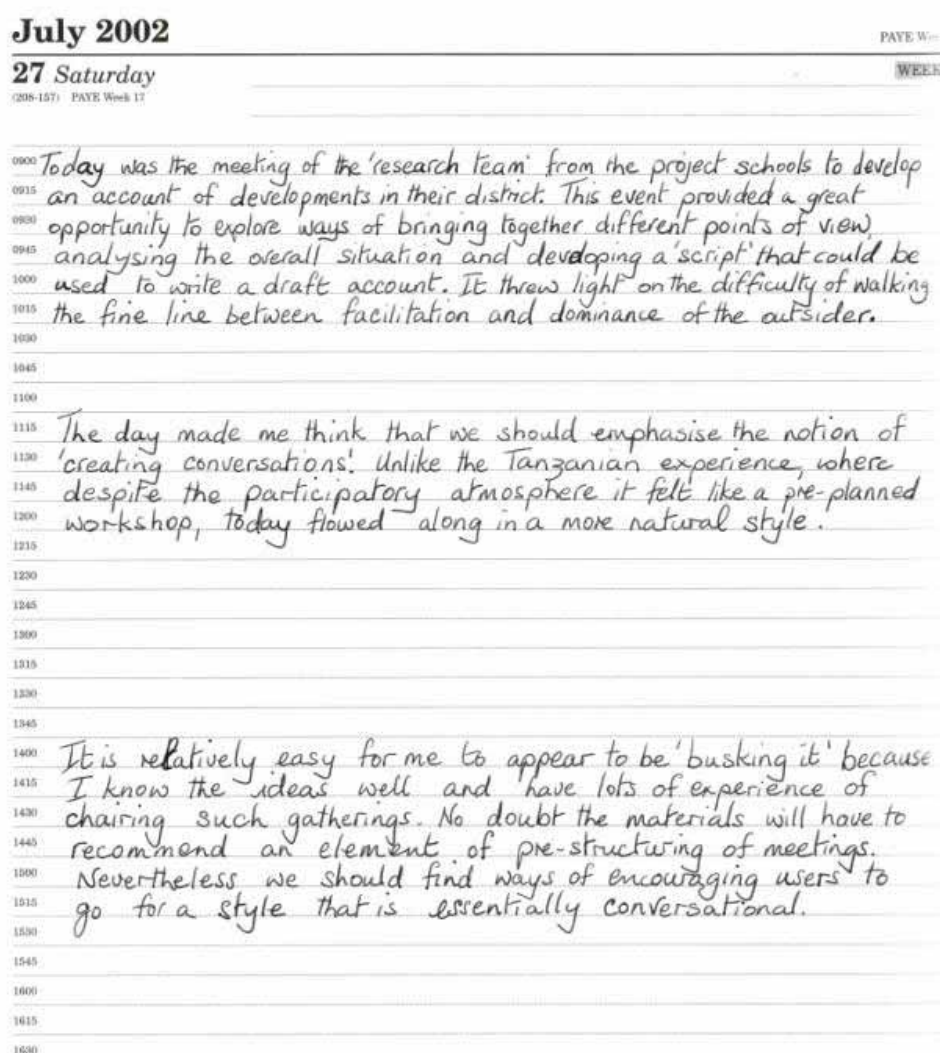 July 2002
PAYE We
27 Saturday
WEEK
(208-157) PAYE Week 17
0900 Today was the meeting of the 'research team' from the project schools to develop
0915 an account of developments in their district. This event provided a great
0930 opportunity to explore ways of bringing together different points of view,
0945 analysing the overall situation and developing a 'script' that could be
1000 used to write a draft account. It threw light on the difficulty of walking
1015 the fine line between facilitation and dominance of the outsider.
1030
1045
1100
1115 The day made me think that we should emphasise the notion of
1130 'creating conversations'. Unlike the Tanzanian experience, where
1145 despite the participatory atmosphere it felt like a pre-planned
1200 workshop, today flowed along in a more natural style.
1215
1230
1245
1300
1315
1330
1345
1400 It is relatively easy for me to appear to be 'busking it' because
1415 I know the ideas well and have lots of experience of
1430 chairing such gatherings. No doubt the materials will have to
1445 recommend an element of pre-structuring of meetings.
1500 Nevertheless we should find ways of encouraging users to
1515 go for a style that is essentially conversational.
1530
1545
1600
1615
1630